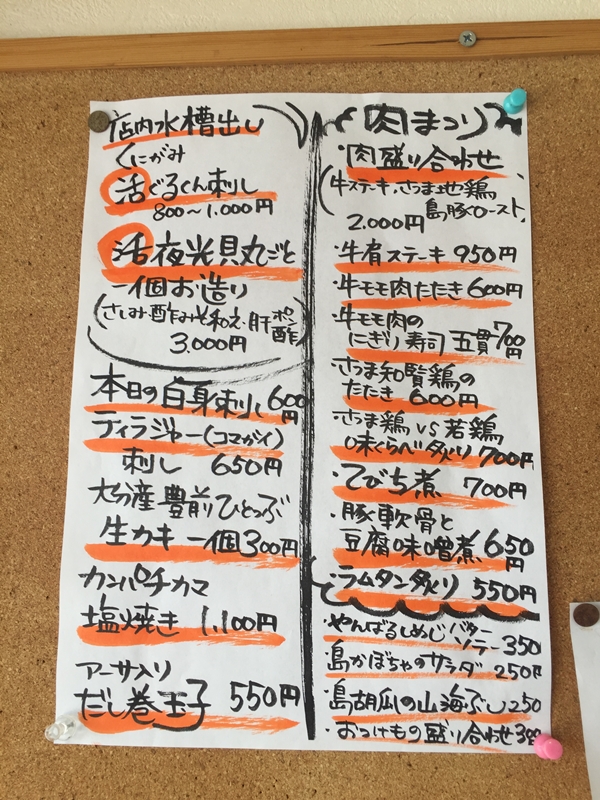 店内水槽出し
くにがみ
活ぐるくん刺し
800〜1.000円
活夜光貝丸ごと
一個お造り
(さしみ酢みそ和え・肝ポン酢)
3.000円
本日の白身刺し 600円
ティラジャー(コマガイ)
刺し 650円
大分産豊前ひとつぶ
生カキ 一個300円
カンパチカマ
塩焼き 1,100円
アーサ入り
だし巻玉子 550円
肉まつり
・肉盛り合わせ
(牛ステーキ、さつま地鶏
島豚ロースト)
2.000円
・牛肩ステーキ 950円
・牛モモ肉たたき 600円
・牛モモ肉の
にぎり寿司 五貫 700円
・さつま知覧鶏の
たたき 600円
・さつま鶏 VS 若鶏
味くらべ炙り 700円
・てびち煮 700円
・豚軟骨と
豆腐味噌煮 650円
・ラムタン炙り 550円
・やんばるしめじバターソテー 350
・島かぼちゃのサラダ 250円
・島胡瓜の山海ぶし 250
・おつけもの盛り合わせ 300